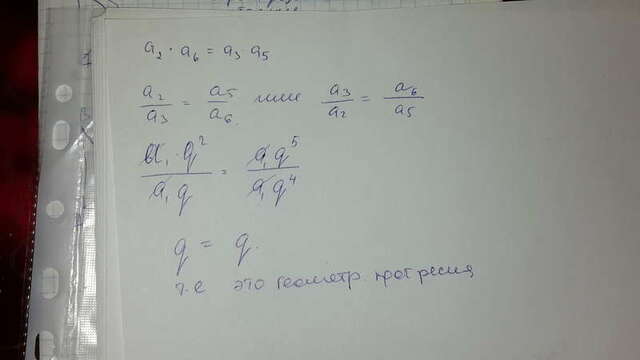 a₂ · a₆ = a₃ a₅
a₂/a₃ = a₅/a₆. или a₃/a₂ = a₆/a₅
a₁ · q²/a₁ q = a₁ q⁵/a₁ q⁴
q = q.
т.е это геометр. прогресия